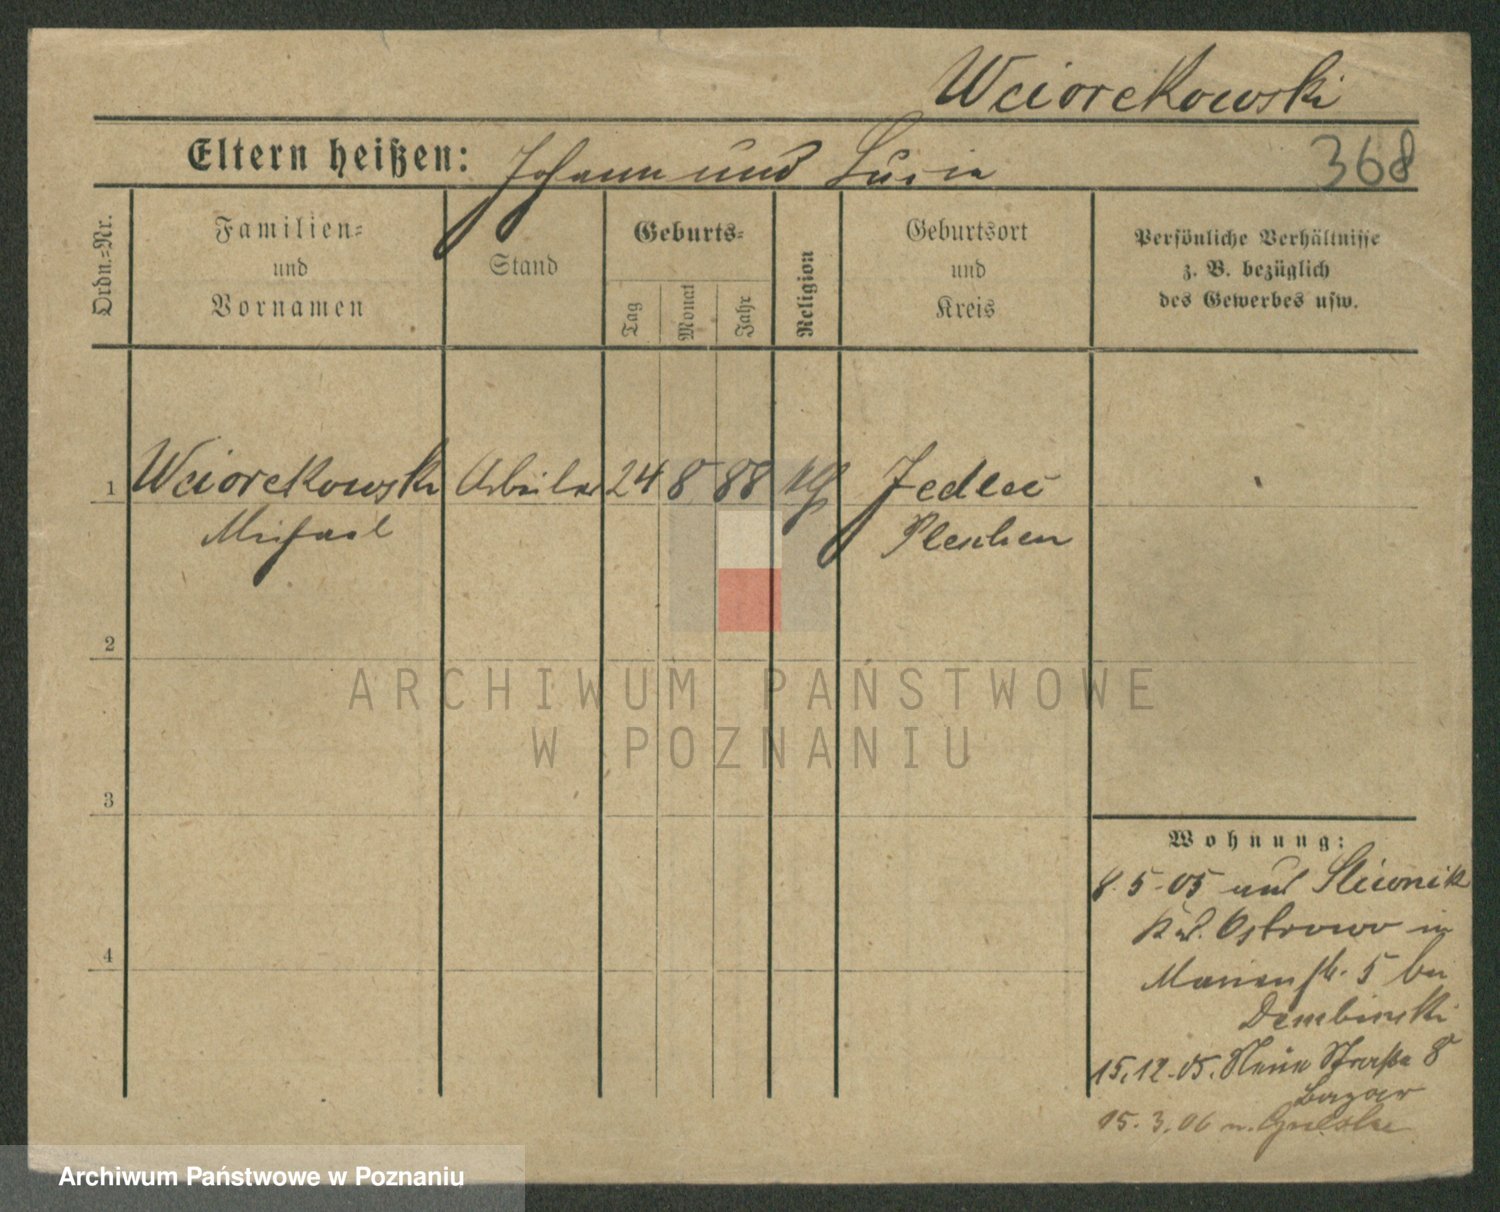 Wciorekowski
Eltern heißen: Johann und Lucia
368
Ordn.-Nr.
Familien-
und
Vornamen
Stand
Geburts-
Tag
Monat
Jahr
Religion
Geburtsort
und
Kreis
Persönliche Verhältnisse
z. B. bezüglich
des Gewerbes usw.
1 Wciorekowski Arbeiter 24 8 88 Jedlec
Michael Pleschen
2
3
4
Wohnung:
8.5-05 aus Sliwnik
Ostrowo in
Marienstr. 5 bei
Dembinski
15.12.05. Neue Straße 8
Bazar
15.3.06 n.
ARCHIWUM PAŃSTWOWE
W POZNANIU
Archiwum Państwowe w Poznaniu